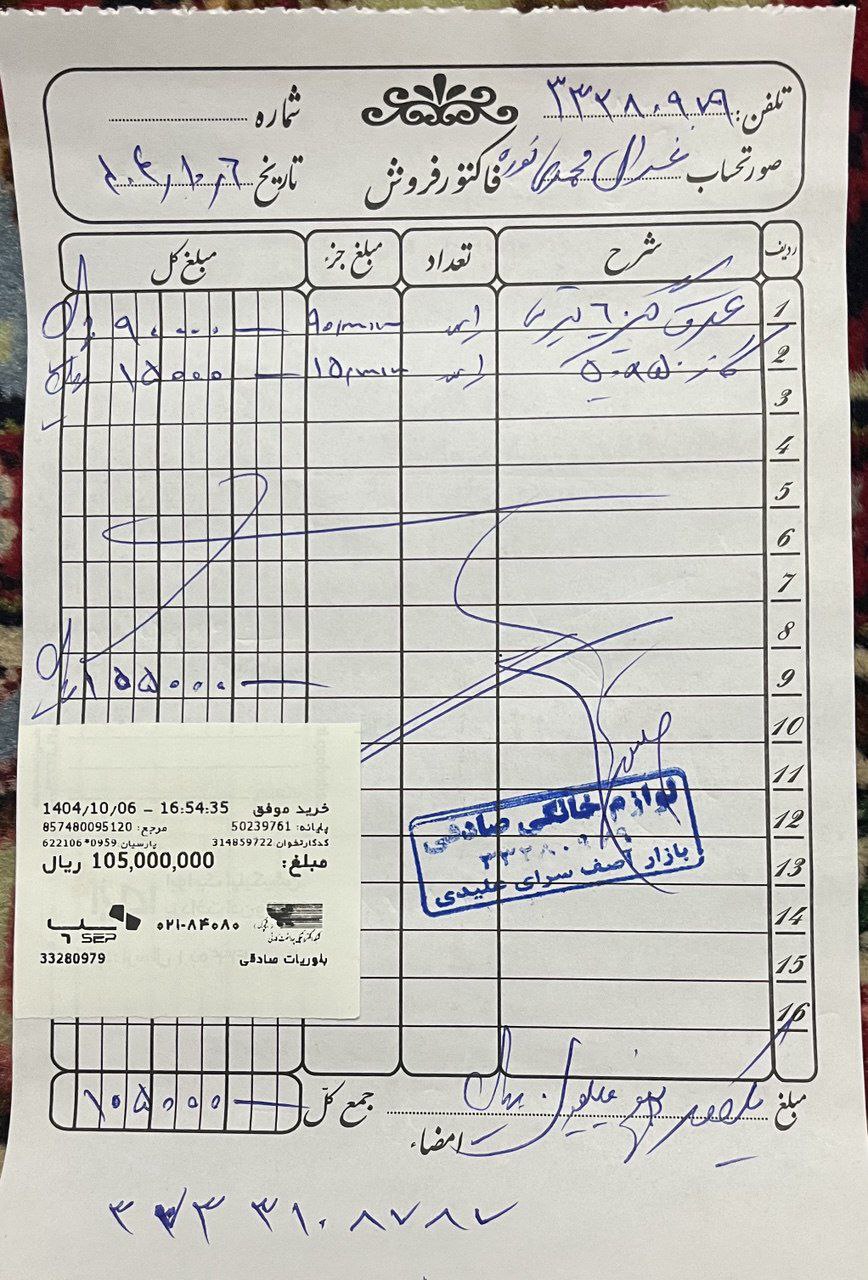 تلفن: ۳۳۲۸۰۹۷۹
شماره
صورتحساب
فاکتور فروش
تاریخ ۴,۱۰,۶
ردیف شرح تعداد مبلغ جزء مبلغ کل
1 ۹۰۰۰۰
2 گاز ۱۵۰۰۰
3
4
5
6
7
8
9 ۱۰۵۰۰۰
10
11
12
13
14
15
16
لوازم خانگی صادقی
۳۳۲۸۰۹۷۹
بازار آصف سرای علیدی
خرید موفق 1404/10/06 - 16:54:35
پایانه: 50239761 مرجع: 857480095120
کدکارتخوان 314859722 پارسیان 0959*622106
مبلغ: 105,000,000 ریال
۰۲۱-۸۴۰۸۰
سپ
SEP
بلوریات صادقی 33280979
مبلغ یکصد و پنج میلیون ریال
جمع کل ۱۰۵۰۰۰
امضاء
۳۱۰۸۷۸۷